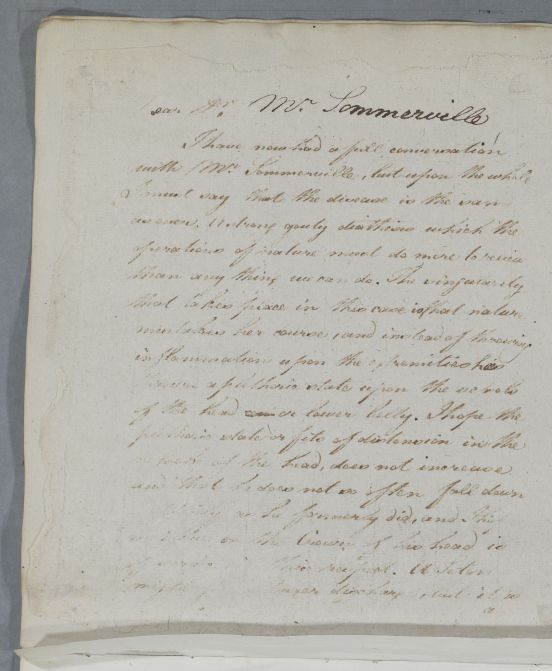 Dear Sir. Mr. Sommerville
I have now had a full conversation
with Mr. Sommerville, but upon the whole
I must say that the disease is the same
as ever. A strong gouty diathesis which the
operations of nature must do more to relieve
than any thing we can do. The singularity
that takes place in this case is that nature
mistakes her course, and instead of throwing
inflammation upon the extremities has
thrown a plethoric state upon the vessels
of the head or lower belly. I hope the
plethoric state or fits of distension in the
of the head, does not increase
and that he does not so often fall down
as he formerly did, and this
on the of his head is
this respect. A
might